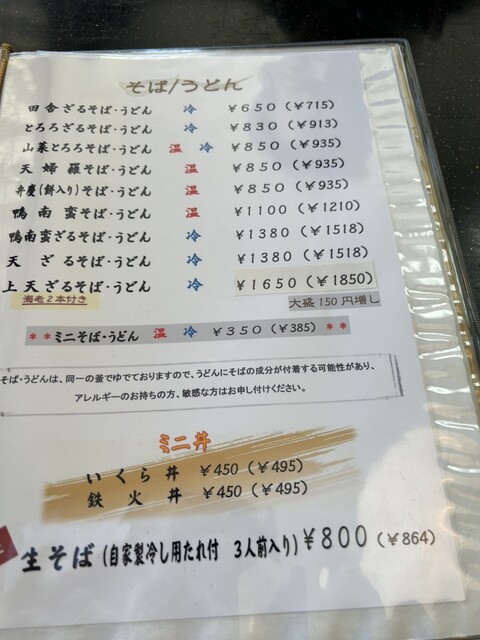 そば/うどん
田舎ざるそば・うどん 冷 ￥650（￥715）
とろろざるそば・うどん 冷 ￥830（￥913）
山菜とろろそば・うどん 温 冷 ￥850（￥935）
天婦羅そば・うどん 温 ￥850（￥935）
弁慶（餅入り）そば・うどん 温 ￥850（￥935）
鴨南蛮そば・うどん 温 ￥1100（￥1210）
鴨南蛮ざるそば・うどん 冷 ￥1380（￥1518）
天ざるそば・うどん 冷 ￥1380（￥1518）
上天ざるそば・うどん 冷 ￥1650（￥1850）
海老2本付き 大盛150円増し
**ミニそば・うどん 温 冷 ￥350（￥385）**
そば・うどんは、同一の釜でゆでておりますので、うどんにそばの成分が付着する可能性があり、
アレルギーのお持ちの方、敏感な方はお申し付けください。
ミニ丼
いくら丼 ￥450（￥495）
鉄火丼 ￥450（￥495）
生そば（自家製冷し用たれ付 3人前入り）￥800（￥864）